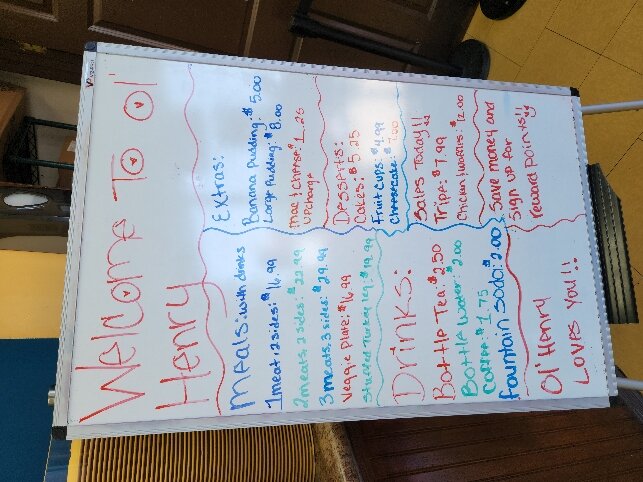 WELCOME TO Ol'
Henry
Meals with drinks
1 meat, 2 sides: $16.99
2 meats, 2 sides: $22.99
3 meats, 3 sides: $29.99
Veggie Plate: $16.99
Stuffed Turkey Leg: $19.99
Drinks:
Bottle Tea: $2.50
Bottle Water: $2.00
Coffee: $1.75
fountain Soda: $2.00
Ol' Henry
Loves You!!
Extras:
Banana Pudding: $5.00
Large Pudding: $8.00
Mac & Cheese: $1.25
Upcharge
Desserts:
Cakes: $5.25
Fruit Cups: $4.99
Cheesecake: $7.00
Sales Today!!
Tripe: $7.99
Chicken & Waffles: $12.00
Save money and
sign up for
reward points!!